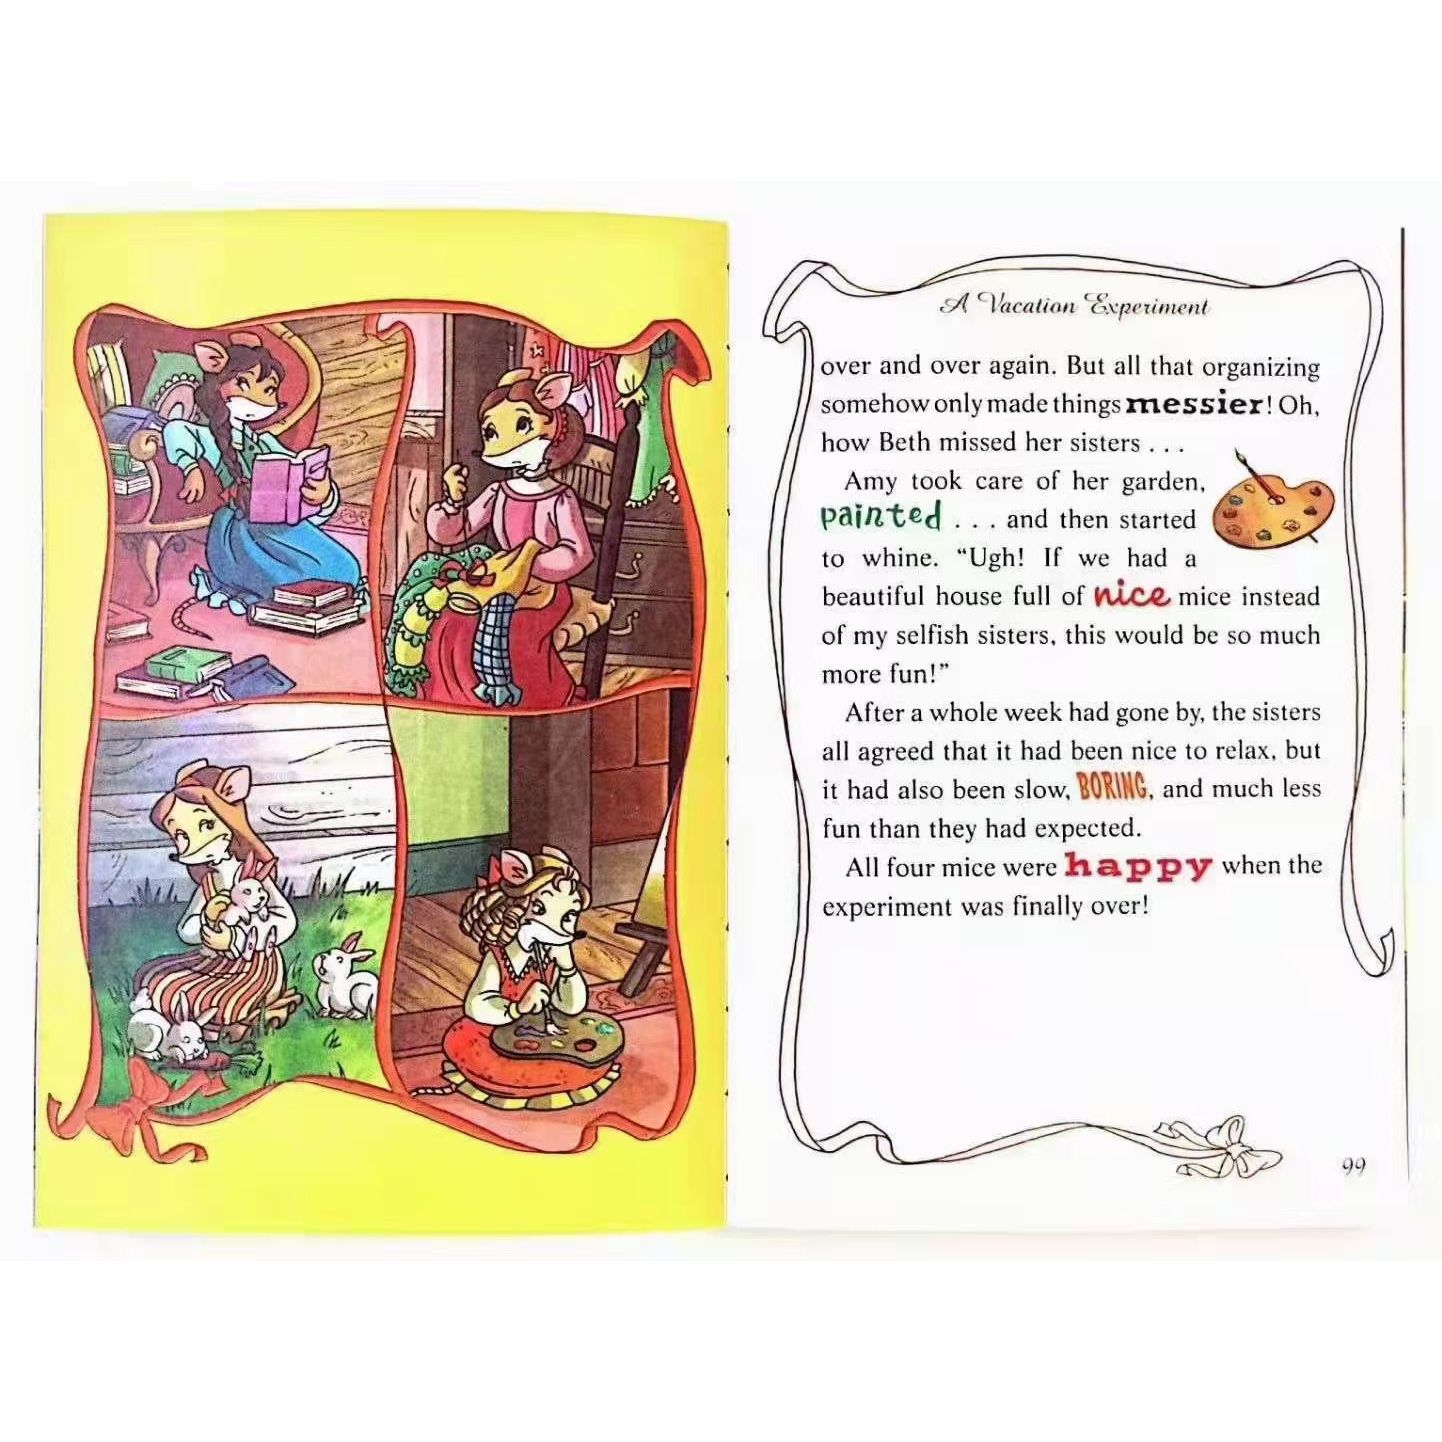 A Vacation Experiment
over and over again. But all that organizing
somehow only made things messier! Oh,
how Beth missed her sisters . . .
Amy took care of her garden,
painted . . . and then started
to whine. “Ugh! If we had a
beautiful house full of nice mice instead
of my selfish sisters, this would be so much
more fun!”
After a whole week had gone by, the sisters
all agreed that it had been nice to relax, but
it had also been slow, BORING, and much less
fun than they had expected.
All four mice were happy when the
experiment was finally over!
99